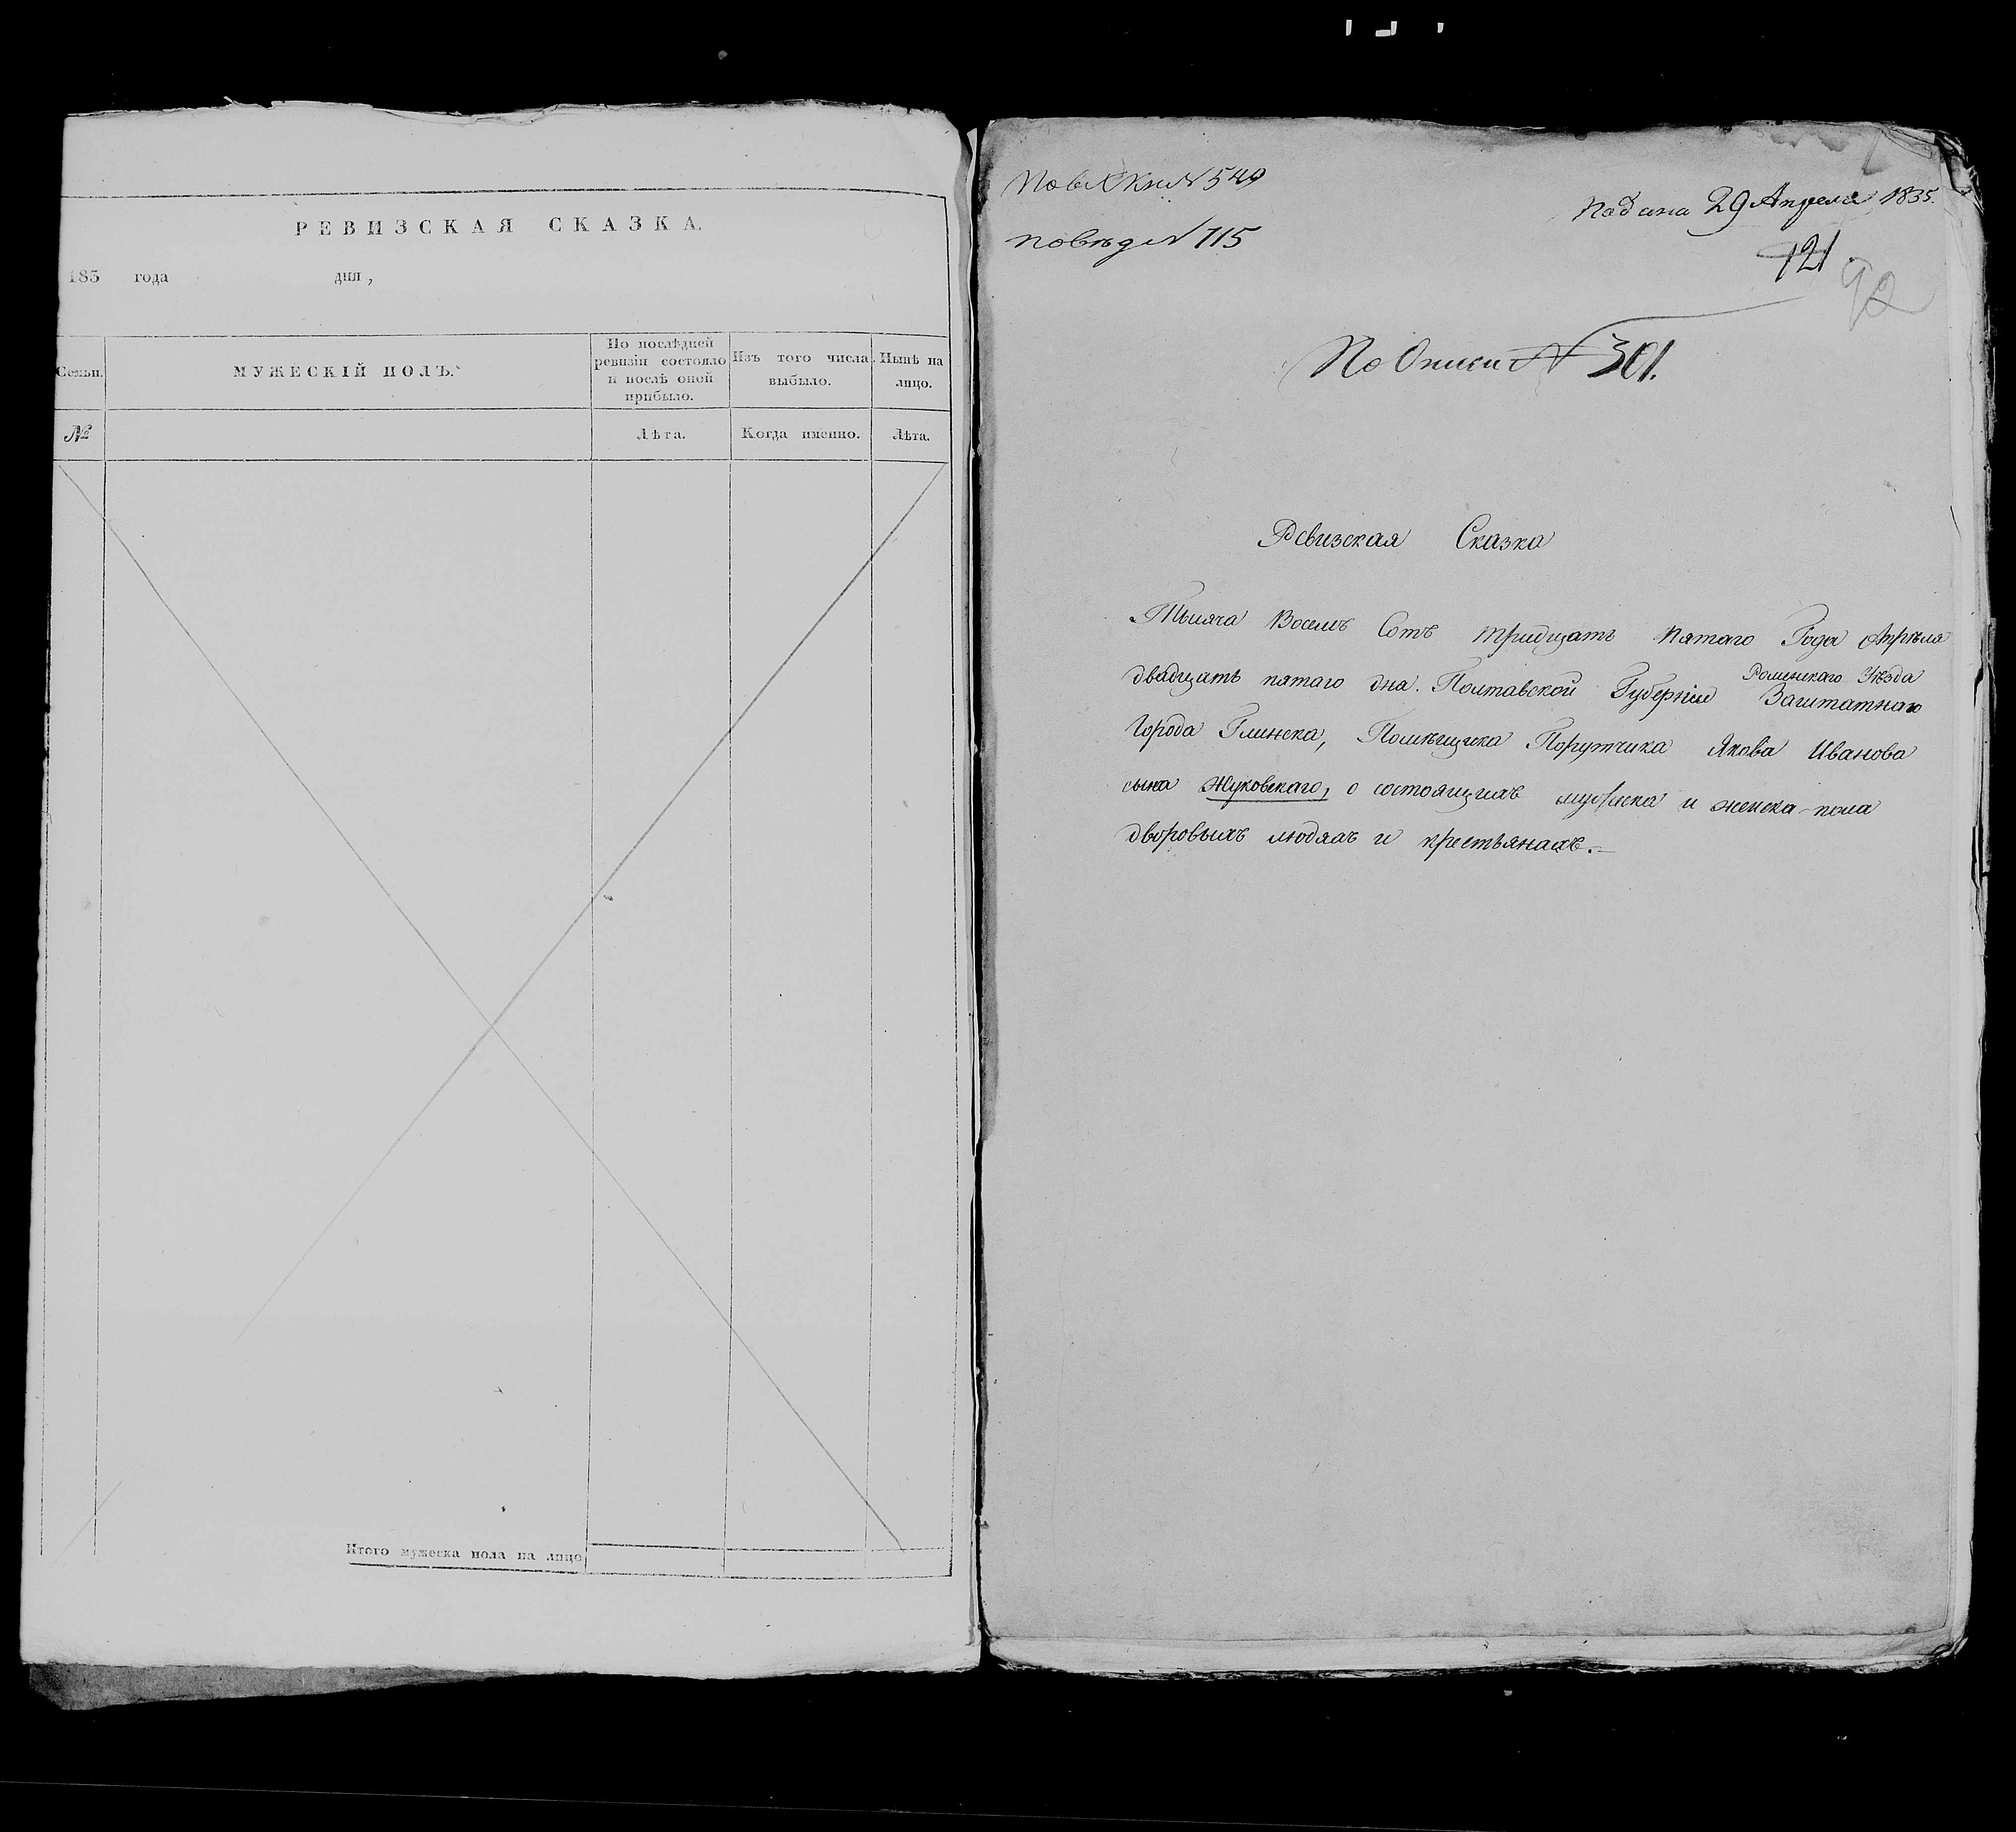 РЕВИЗСКАЯ СКАЗКА.
183 года дня,
Семьи.
МУЖЕСКІЙ ПОЛЪ.
По послѣдней ревизіи состояло и послѣ оной прибыло.
Изъ того числа выбыло.
Нынѣ на лицо.
№
Лѣта.
Когда именно.
Лѣта.
Итого мужеска пола на лицо
№ 549
№ 115
Подана 29 Апреля 1835.
121.
92
По Описи № 301.
Ревизская Сказка
Тысяча Восемъ Сотъ тридцать пятаго Года Апрѣля
двадцать пятаго дна. Полтавской Губерніи Роменскаго Уѣзда Заштатнаго
Города Глинска, Помѣщика Порутчика Якова Иванова
сына Жуковскаго, о состоящихъ мужеска и женска-пола
дворовыхъ людяхъ и крестьянахъ.